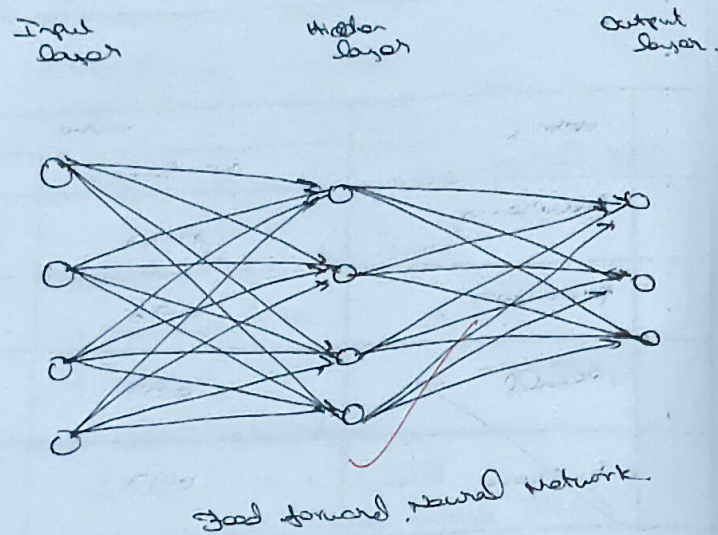 Input
layer
Hidden
layer
Output
layer.
Feed forward Neural Network.